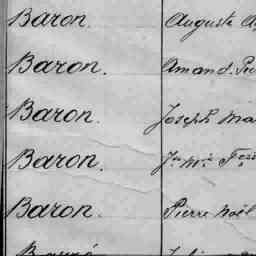 Baron. Auguste
Baron. Amand.
Baron. Joseph Ma
Baron. Jn Mie
Baron. Pierre Noël